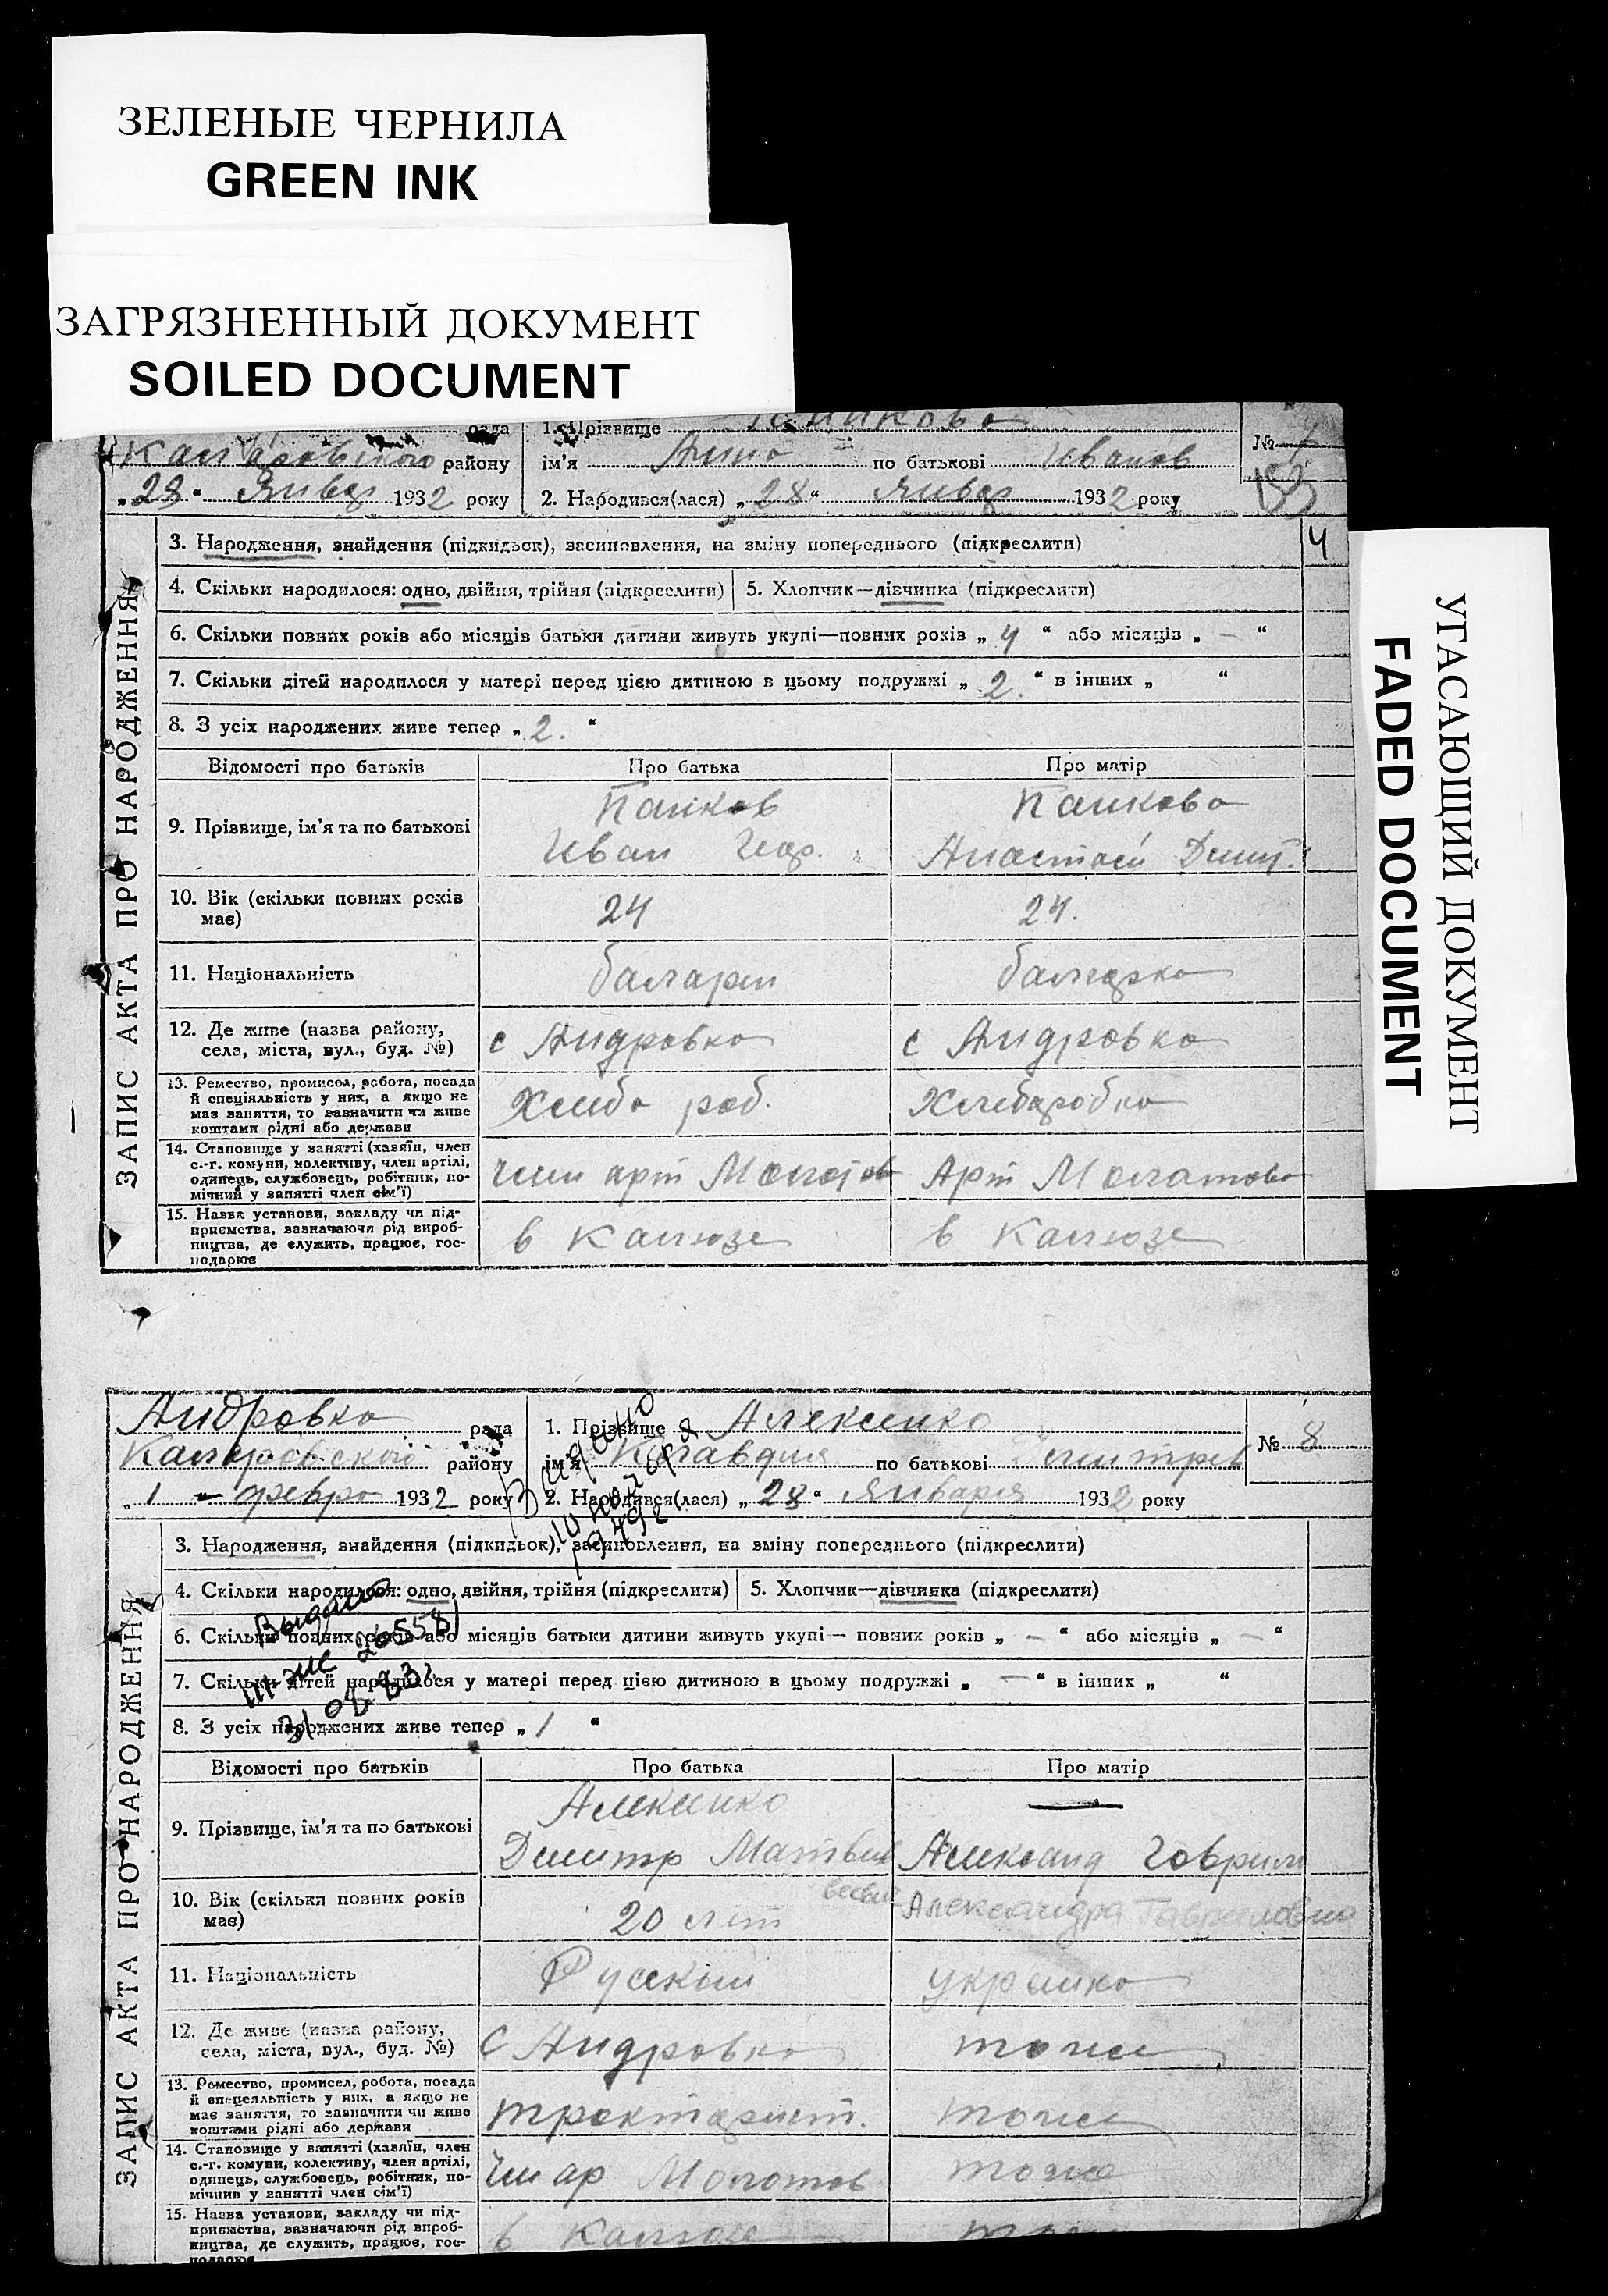 ЗЕЛЕНЫЕ ЧЕРНИЛА
GREEN INK
ЗАГРЯЗНЕННЫЙ ДОКУМЕНТ
SOILED DOCUMENT
УГАСАЮЩИЙ ДОКУМЕНТ
FADED DOCUMENT
рада 1. Прізвище
району ім'я Анна по батькові Иванов №
„28“ Январ 1932 року 2. Народився(лася) „28“ Январ 1932 року 133
ЗАПИС АКТА ПРО НАРОДЖЕННЯ
3. Народження, знайдення (підкидьок), засиновлення, на зміну попереднього (підкреслити) 4
4. Скільки народилося: одно, двійня, трійня (підкреслити) 5. Хлопчик—дівчинка (підкреслити)
6. Скільки повних років або місяців батьки дитини живуть укупі—повних років „ 4 “ або місяців „ — “
7. Скільки дітей народилося у матері перед цією дитиною в цьому подружжі „ 2. “ в інших „ “
8. З усіх народжених живе тепер „ 2. “
Відомості про батьків Про батька Про матір
9. Прізвище, ім'я та по батькові
Панков Панкова
Иван Анастасй Дмит.
10. Вік (скільки повних років має) 24 24.
11. Національність болгарин болгарка
12. Де живе (назва району, села, міста, вул., буд. №) с Андровка с Андровка
13. Ремество, промисол, робота, посада
й спеціяльність у них, а якщо не
має заняття, то зазначити чи живе
коштами рідні або держави
Хлебо роб. Хлебаробка
14. Становище у занятті (хазяїн, член
с.-г. комуни, колективу, член артілі,
одинець, службовець, робітник, по-
мічний у занятті член сім'ї)
член арт Молотов Арт Молатова
15. Назва установи, закладу чи під-
приємства, зазначаючи рід вироб-
ництва, де служить, працює, гос-
подарює
в Колхозе в Колхозе
Андровка рада 1. Прізвище Алексенко
району ім'я Клавдия по батькові Дмитрев № 8
„1 — февро 1932 року 2. Народився(лася) „28“ Января 1932 року
Видано
10 ноября
1949г
ЗАПИС АКТА ПРО НАРОДЖЕННЯ
3. Народження, знайдення (підкидьок), засиновлення, на зміну попереднього (підкреслити)
4. Скільки народилося: одно, двійня, трійня (підкреслити) 5. Хлопчик—дівчинка (підкреслити)
6. Скільки повних років або місяців батьки дитини живуть укупі— повних років „ — “ або місяців „ — “
7. Скільки дітей народилося у матері перед цією дитиною в цьому подружжі „ — “ в інших „ “
8. З усіх народжених живе тепер „ 1 “
Выдано
III-ЖС 265581
31.08.83г.
Відомості про батьків Про батька Про матір
9. Прізвище, ім'я та по батькові
Алексенко —
Дмитр Матвеев Александ Гаврил
Александра Гавриловна
10. Вік (скільки повних років має) 20 лет
11. Національність Русский украинка
12. Де живе (назва району, села, міста, вул., буд. №) С Андровка тоже
13. Ремество, промисел, робота, посада
й спецеяльність у них, а якщо не
має заняття, то зазначити чи живе
коштами рідні або держави
трактарист. тоже
14. Становище у занятті (хазяїн, член
с.-г. комуни, колективу, член артілі,
одинець, службовець, робітник, по-
мічник у занятті член сім'ї)
Член ар Молотов тоже
15. Назва установи, закладу чи під-
приємства, зазначаючи рід вироб-
ництва, де служить, працює, гос-
подарює
в Колхозе